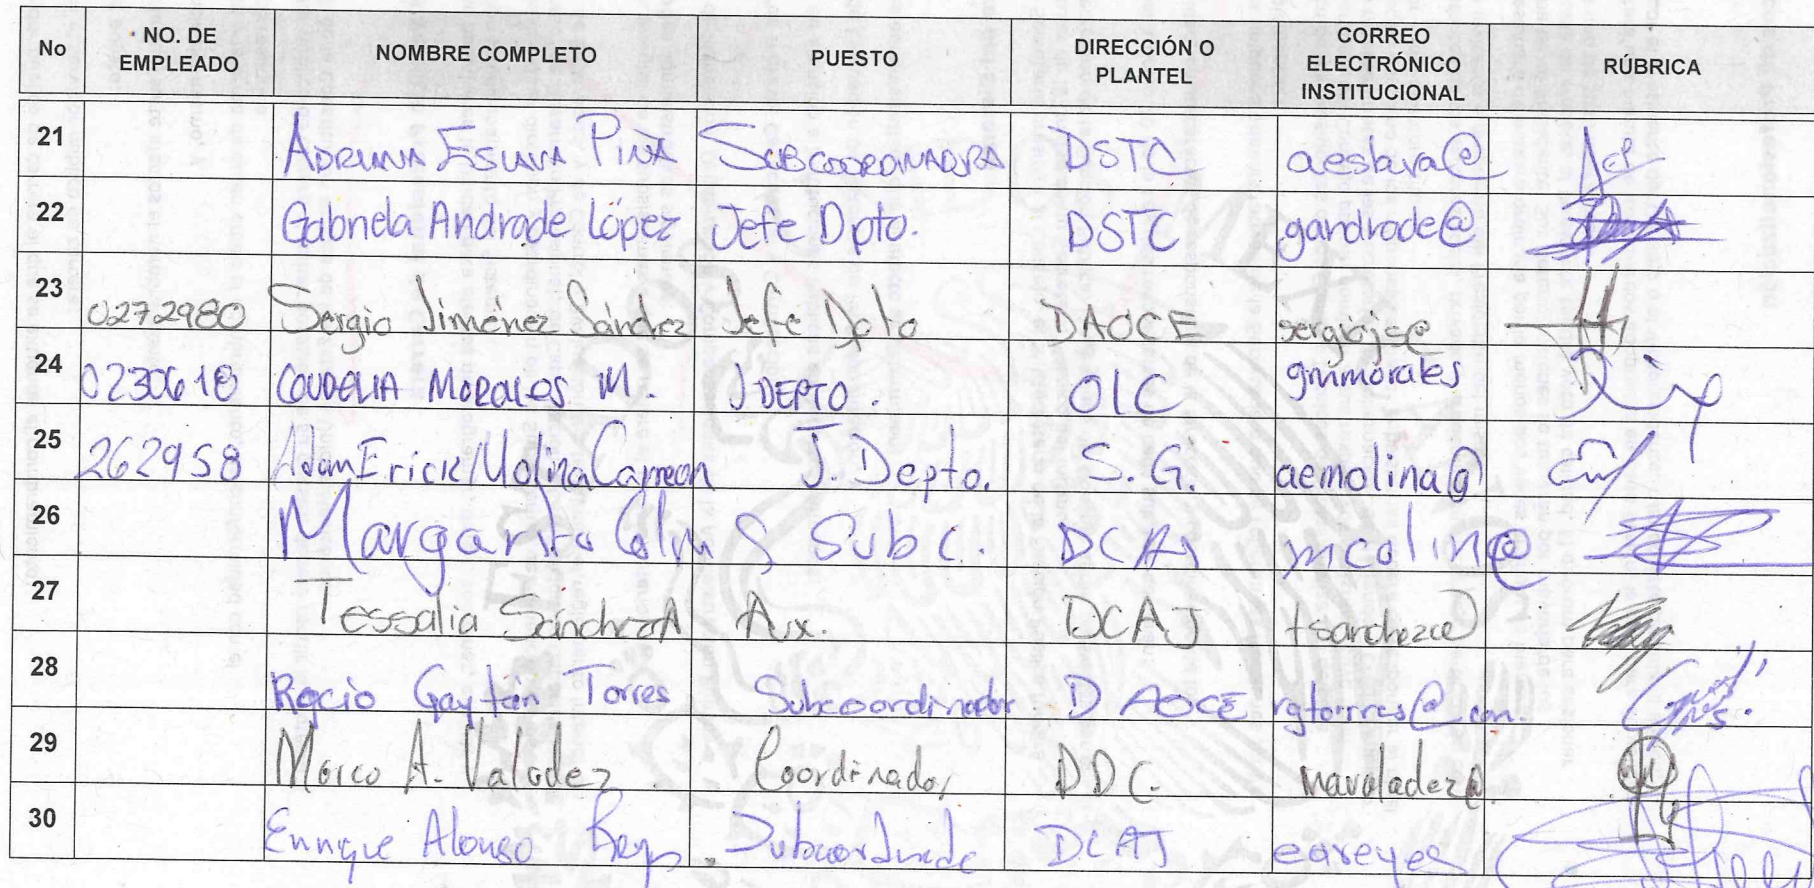 No NO. DE EMPLEADO NOMBRE COMPLETO PUESTO DIRECCIÓN O PLANTEL CORREO ELECTRÓNICO INSTITUCIONAL RÚBRICA
21 ADRIANA ESLAVA PIÑA SUBCOORDINADORA DSTC aeslava@
22 Gabriela Andrade López Jefe Dpto. DSTC gandrade@
23 0272980 Sergio Jiménez Sánchez Jefe Dpto DAOCE sergiojs@
24 0230618 MORALES M. J DEPTO. OIC gmmorales
25 262958 Adam Erick Molina J. Depto. S.G. aemolina@
26 Margarita Colin S Subc. DCAJ mcolin@
27 Tessalia Sánchez A Aux. DCAJ tsanchez@
28 Rocio Gaytán Torres Subcoordinador DAOCE rgtorres@
29 Marco A. Valadez Coordinador DDC. mavaladez@
30 Enrique Alonso Reyes DCAJ eareyes